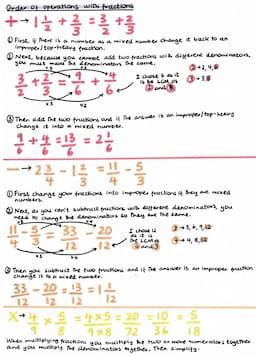 Order of operations with fractions
+ → 1 1/2 + 2/3 = 3/2 + 2/3
① First, if there is a number as a mixed number change it back to an
improper/top-heavy fraction.
② Next, because you cannot add two fractions with different denominators,
you must make the denominators the same.
×3 ×2
3/2 + 2/3 = 9/6 + 4/6
I chose 6 as it
is the LCM of
② and ③
② → 2, 4, 6
③ → 3, 6
×3 ×2
③ Then add the two fractions and if the answer is an improper/top-heavy
change it into a mixed number.
9/6 + 4/6 = 13/6 = 2 1/6
— → 2 3/4 - 1 2/3 = 11/4 - 5/3
① First change your fractions into improper fractions if they are mixed
numbers.
② Next, as you can't subtract fractions with different denominators, you
need to change the denominators so they are the same.
11/4 - 5/3 = 33/12 - 20/12
I chose 12
as it is
the LCM of
④ and ③
③ → 3, 6, 9, 12
④ → 4, 8, 12
×3 ×4
③ Then you subtract the two fractions and if the answer is an improper fraction
change it to a mixed number.
33/12 - 20/12 = 13/12 = 1 1/12
X → 4/9 × 5/8 = 4×5/9×8 = 20/72 = 10/36 = 5/18
When multiplying fractions you multiply the two or more numerators together
and you multiply the denominators together. Then simplify.